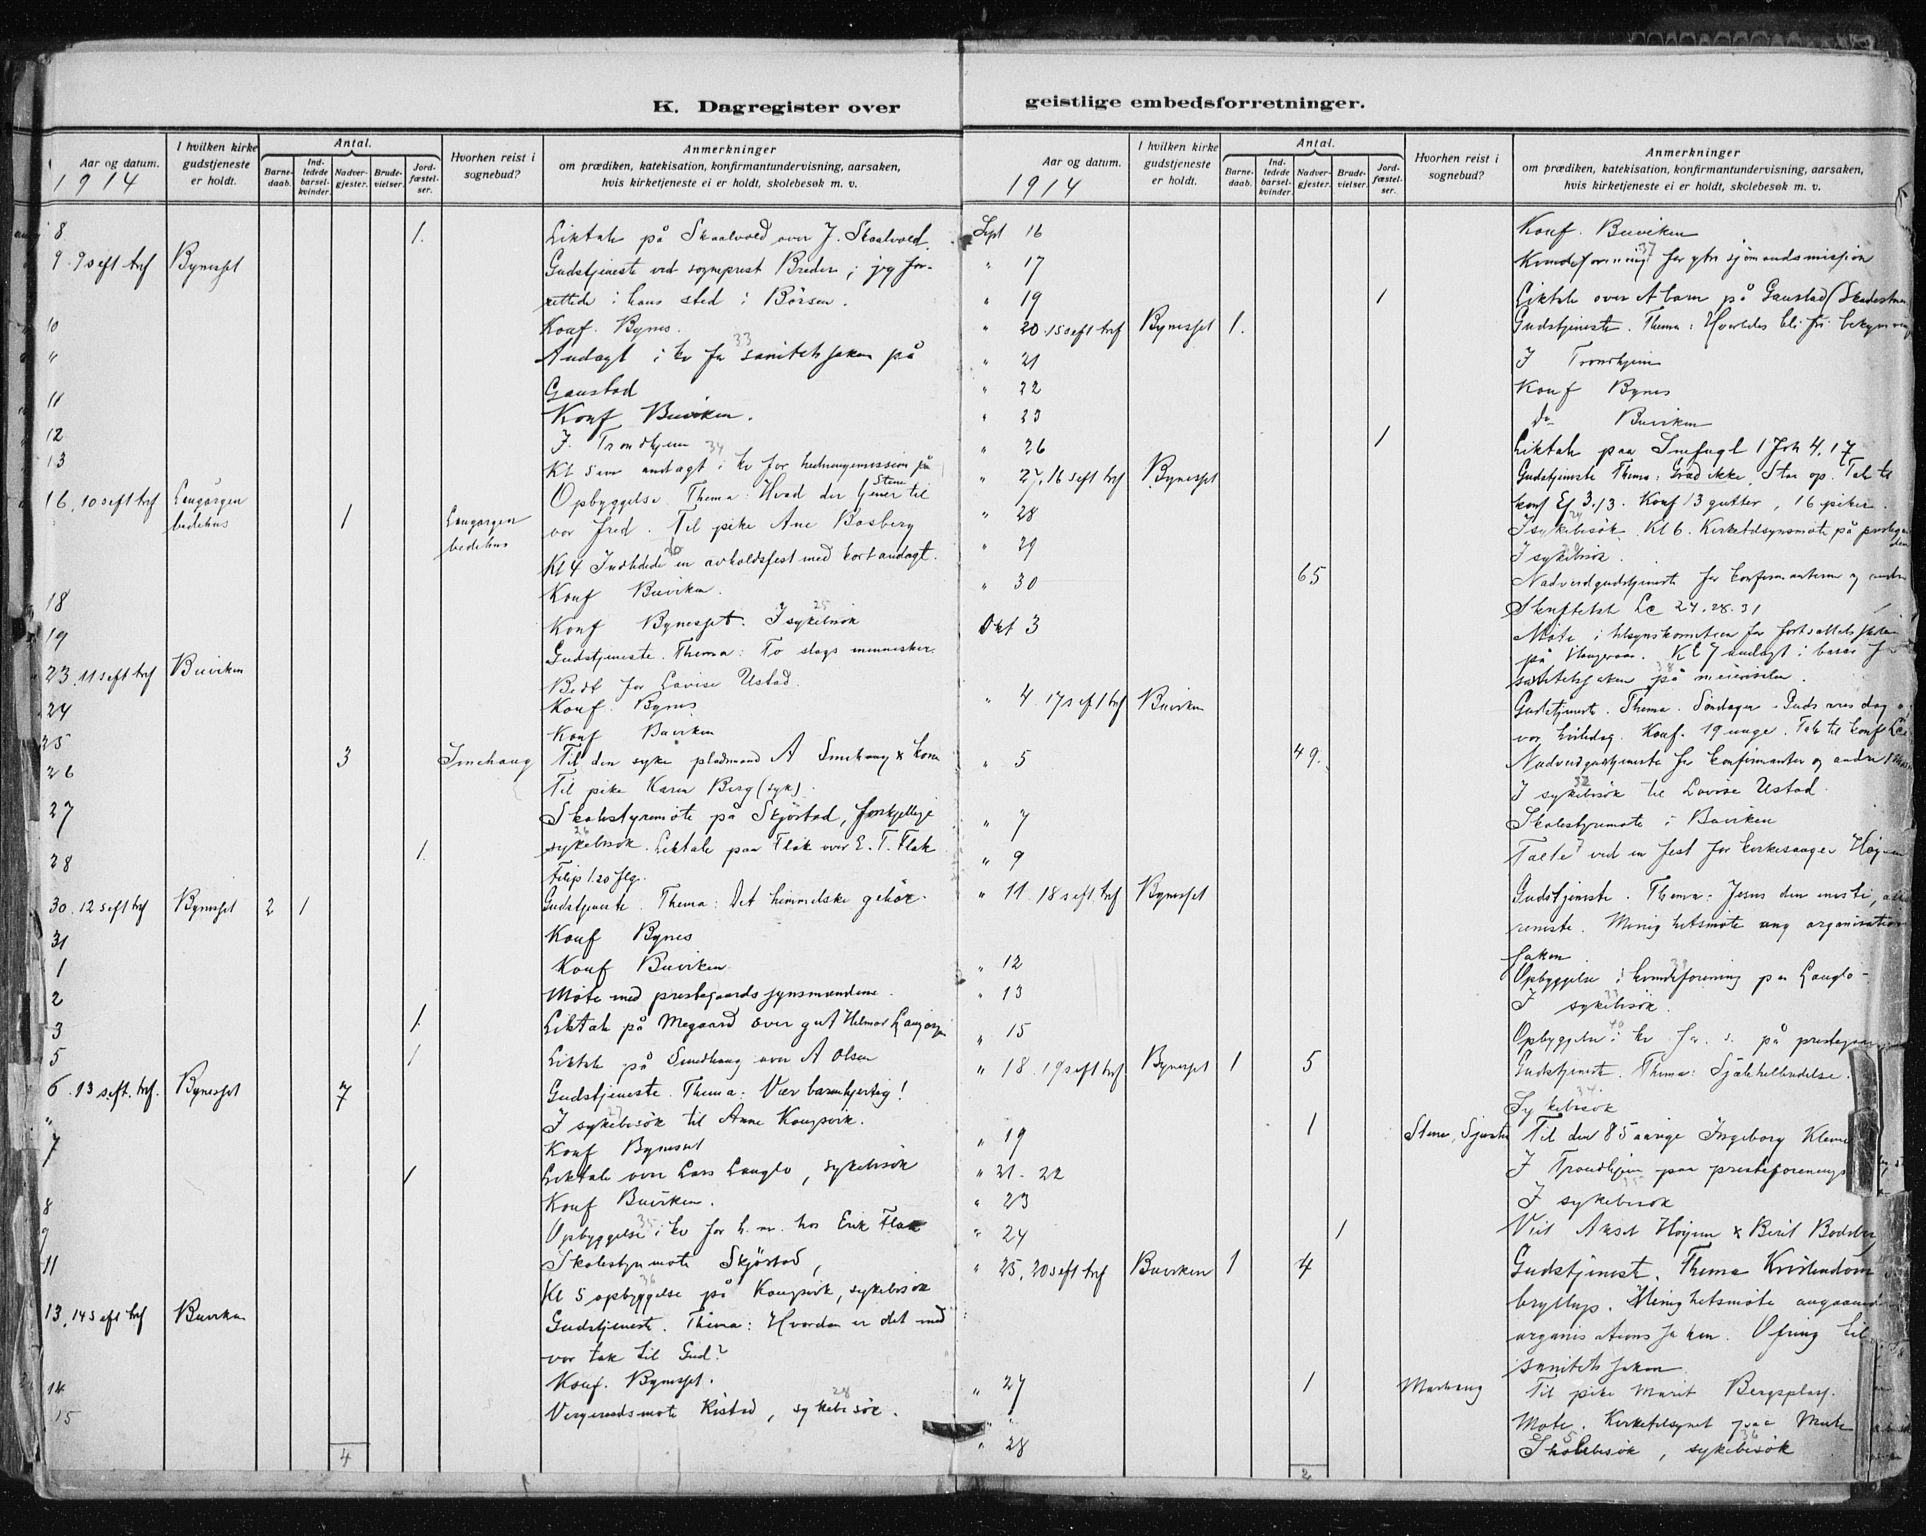 K. Dagregister over
Aar og datum.
1914
I hvilken kirke gudstjeneste er holdt.
Antal.
Barnedaab.
Indledede barselkvinder.
Nadvergjester.
Brudevielser.
Jordfæstelser.
Hvorhen reist i sognebud?
Anmerkninger
om prædiken, katekisation, konfirmantundervisning, aarsaken,
hvis kirketjeneste ei er holdt, skolebesøk m. v.
8 1. Liktale på Skaalvold over J. Skaalvold.
9. 9 s eft tref Bynesset Gudstjeneste ved sogneprest Breder; jeg for-
rettede i hans sted i Börsen.
10 Konf. Bynes.
" Andagt i kv for sanitetssaken på 33
Gaustad
11 Konf Buviken.
12 I Trondhjem 34
13 Kl 5 em andagt i kv for hedningemission på
Stene
16. 10 s eft tref Langörgen bedehus 1 Langörgen bedehus Opbyggelse. Thema: Hvad der tjener til
vor fred. Til pike Ane Bosberg
20
Kl 4 Indledede en avholdsfest med kort andagt.
18 Konf Buviken.
19 Konf Bynesset. I sykebesök 25
23. 11 s eft tref Buviken Gudstjeneste. Thema: To slags mennesker.
Bedt for Lovise Ustad.
24 Konf. Bynes
25 Konf Buviken
26 3 Smehaug Til den syke pladsmand A Smehaug & kone
Til pike Karen Berg (syk).
27 Skolestyremöte på Skjöstad, forskjellige
26
28 1. sykebesök. Liktale paa Flak over E. T. Flak
Filip 1.20 flg.
30. 12 s eft tref Bynesset 2 1 Gudstjeneste. Thema: Det himmelske gehör.
31 Konf Bynes
1 Konf Buviken
2 Möte med prestegaards synsmændene.
3 1 Liktale på Megaard over gut Helmer Langörgen
5 1 Liktale på Smedhaug over A Olsen
6. 13 s eft. tref. Bynesset 7 Gudstjeneste. Thema: Vær barmhjertig!
" I sykebesök til Anne Kongsvik. 27
7 Konf Bynesset
1 Liktale over Lars Langlo, sykebesök
8 Konf Buviken.
9 Opbyggelse i kv for h. m. hos Erik Flak 35
11 Skolestyremöte Skjöstad,
36
Kl 5 opbyggelse på Kongsvik, sykebesök
13. 14 s eft tref Buviken Gudstjeneste. Thema: Hvordan er det med
vor tak til Gud?
14 Konf. Bynesset.
15 Vergeraadsmöte Ristad, sykebesök. 28
4
geistlige embedsforretninger.
Aar og datum.
1914
I hvilken kirke gudstjeneste er holdt.
Antal.
Barnedaab.
Indledede barselkvinder.
Nadvergjester.
Brudevielser.
Jordfæstelser.
Hvorhen reist i sognebud?
Anmerkninger
om prædiken, katekisation, konfirmantundervisning, aarsaken,
hvis kirketjeneste ei er holdt, skolebesøk m. v.
Sept 16 Konf. Buviken
" 17 Kvindeforening for ytre sjömandsmission 37
" 19 1 Liktale over A barn på Gaustad
" 20. 15 s eft tref Bynesset 1. Gudstjeneste. Thema: Hvorledes bli fri
" 21 I Trondhjem
" 22 Konf Bynes
" 23 do Buviken
" 26 1 Liktale paa Smefagl 1 Joh 4.17
" 27, 16 s eft tref Bynesset Gudstjeneste Thema: Græd ikke, Staa op. Tale til
konf Ef 3.13. Konf 13 gutter, 16 piker.
" 28 I sykebesök. Kl 6. Kirketilsynsmöte på prestegaarden
" 29 I sykebesök.
" 30 65 Nadverdgudstjeneste for konfirmanterne og andre
Skriftetale Lc 24.28.31
Okt 3 Möte i tilsynskomiteen for fortsættelsesskolen
på Hangeraas. Kl 7 andagt i basar for
38
sanitetssaken på meierisalen.
" 4. 17 s eft tref Buviken Gudstjeneste. Thema. Söndagen Guds æresdag og
vor hviledag. Konf. 19 unge. Tale til konf
" 5 49. Nadverdgudstjeneste for konfirmanter og andre
32
I sykebesök til Lovise Ustad.
" 7 Skolestyremöte i Buviken
" 9 Talte ved en fest for kirkesanger Höyem
" 11. 18 s eft. tref Bynesset Gudstjeneste. Thema: Jesus den
Menighetsmöte ang organisations
saken
" 12 Opbyggelse i kvindeforening paa Langlo 39
" 13 I sykebesök. 33
" 15 Opbyggelse i kv. for s. på prestegaarden 40
" 18. 19 s eft tref Bynesset 1 5 Gudstjeneste. Thema: Själehelbredelse.
34
Sykebesök
" 19 1 Stene, Til den 85 aarige Ingeborg
" 21-22 I Trondhjem paa presteforenings
" 23 I sykebesök 35
" 24 1 Viet Aksel Höyem & Berit Bodsberg
" 25. 20 s eft tref Buviken 1 4 Gudstjeneste. Thema Kristendom
bryllup. Menighetsmöte angaaende
organisationssaken. Ofring til
sanitetssaken
" 27 1 Marhaug Til pike Marit Bergsplass.
" Möte. Kirketilsynet paa
" 28 Skolebesök, sykebesök 5 36
2